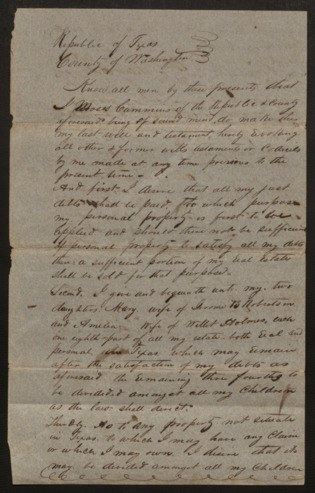 Republic of Texas
County of Washington
Know all men by these presents, that
I Moses Cummins of the Republic & County
aforesaid being of sound mind, do make this
my last will and testament, hereby revoking
all other & former wills testaments or Codicils
by me made at any time previous to the
present time.
And first. I desire that all my just
debts shall be paid. To which purpose
my personal property is first to be
applied and should there not be sufficient
of personal property to satisfy all my debts
then a sufficient portion of my real estate
shall be sold for that purpose.
Second. I give and bequeath unto my two
daughters Mary wife of Robertson
and wife of Willet Holmes, each
one eighth part of all my estate both real and
personal Texas which may remain
after the satisfaction of my debts as
aforesaid the remaining three fourths to
be divided amongst all my Children
as the law shall direct.
Thirdly. As to any property not situate
in Texas to which I may have any Claim
or which I may own. I desire that it
may be divided amongst all my Children